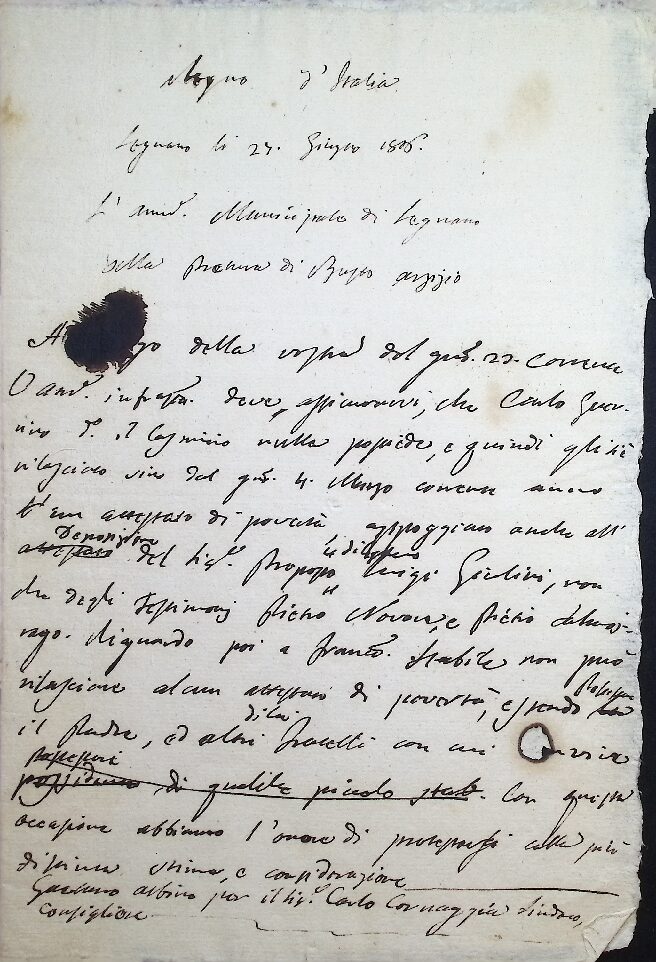 Regno d'Italia
Legnano li 27. Giugno 1806.
L' amm. Municipale di Legnano
Della Pretura di Busto arsizio
della vostra del gno. 23. corrente
l'amm. infrasta. deve, assicurarvi, che Carlo Guer-
rino do. il Casnino nulla possiede, e quindi gli si
rilasciò sino dal gno. 4. Marzo corrente anno
l' attestato di povertà appoggiato anche all'
attestato Deposizione del Sigr. Proposto Luigi Giulini, non
che degli Testimonj Pietro Novara, e Pietro
rago. Riguardo poi a Franco. Stabile non può
rilasciare alcun attestato di povertà, essendo
il Padre, ed altri di lui fratelli con cui
possessori possidenti di qualche piccolo stab. Con questa
occasione abbiamo l'onore di protestarsi colla più
distinta stima, e considerazione
Gaetano albino per il Sigr. Carlo Cornaggia Sindaco,
Consigliere